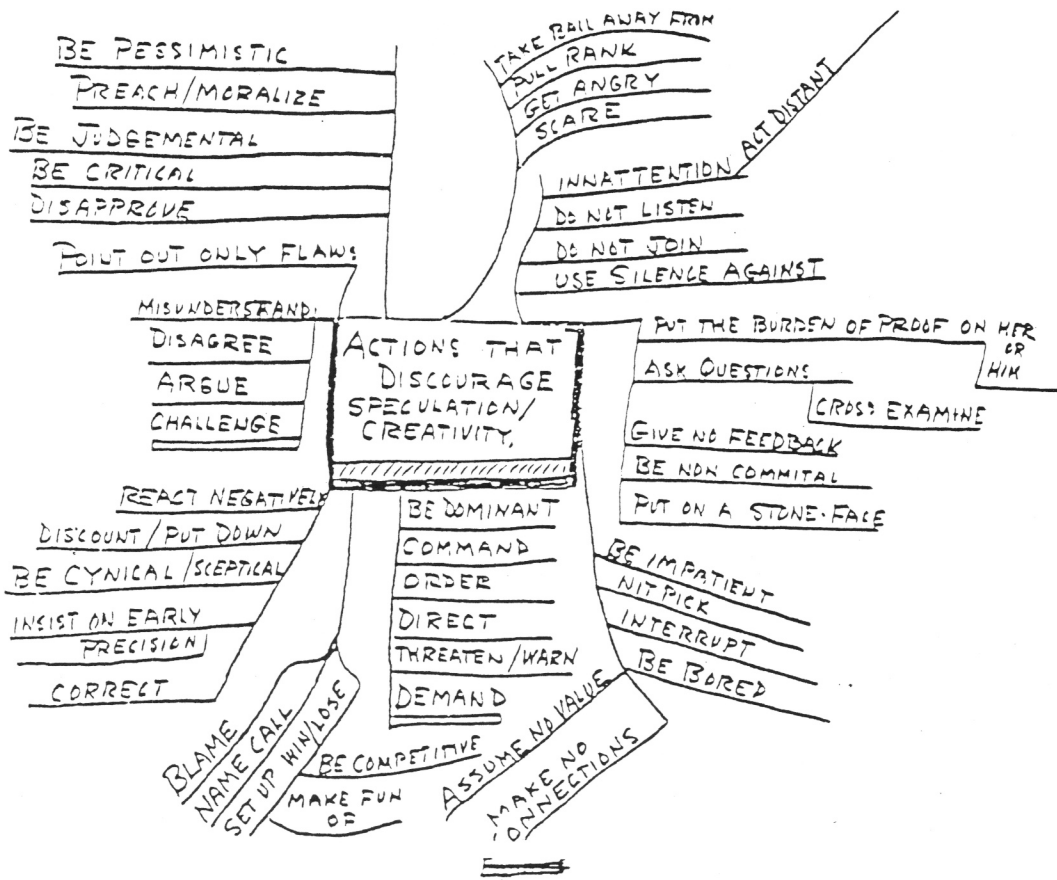 BE PESSIMISTIC
PREACH/MORALIZE
BE JUDGEMENTAL
BE CRITICAL
DISAPPROVE
POINT OUT ONLY FLAWS
MISUNDERSTAND
DISAGREE
ARGUE
CHALLENGE
TAKE BALL AWAY FROM
PULL RANK
GET ANGRY
SCARE
INNATTENTION
ACT DISTANT
DO NOT LISTEN
DO NOT JOIN
USE SILENCE AGAINST
ACTIONS THAT
DISCOURAGE
SPECULATION/
CREATIVITY.
PUT THE BURDEN OF PROOF ON HER
OR
HIM
ASK QUESTIONS
CROSS EXAMINE
GIVE NO FEEDBACK
BE NON COMMITAL
PUT ON A STONE-FACE
REACT NEGATIVELY
DISCOUNT/PUT DOWN
BE CYNICAL/SCEPTICAL
INSIST ON EARLY
PRECISION
CORRECT
BE DOMINANT
COMMAND
ORDER
DIRECT
THREATEN/WARN
DEMAND
BE IMPATIENT
NIT PICK
INTERRUPT
BE BORED
BLAME
NAME CALL
SET UP WIN/LOSE
BE COMPETITIVE
MAKE FUN
OF
ASSUME NO VALUE
MAKE NO
CONNECTIONS